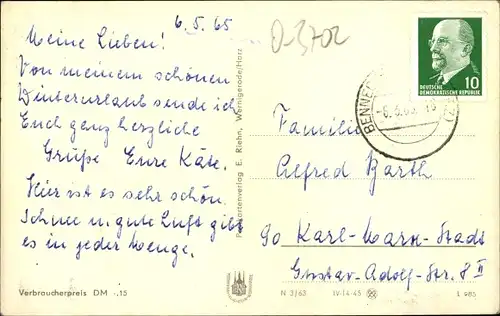 6.5.65
D-3702
Meine Lieben!
Von meinem schönen
Winterurlaub sende ich
Euch ganz herzliche
Grüße Eure Käte.
Hier ist es sehr schön.
Schnee u. gute Luft gibt
es in jeder Menge.
Verbraucherpreis DM -.15
Postkartenverlag E. Riehn, Wernigerode/Harz
DEUTSCHE 10
DEMOKRATISCHE REPUBLIK
BENNE
-6.5.65.-18
Familie
Alfred Barth
90 Karl-Marx-Stadt
Gustav-Adolf-Str. 8 II
N 3/63 IV-14-45 L 985